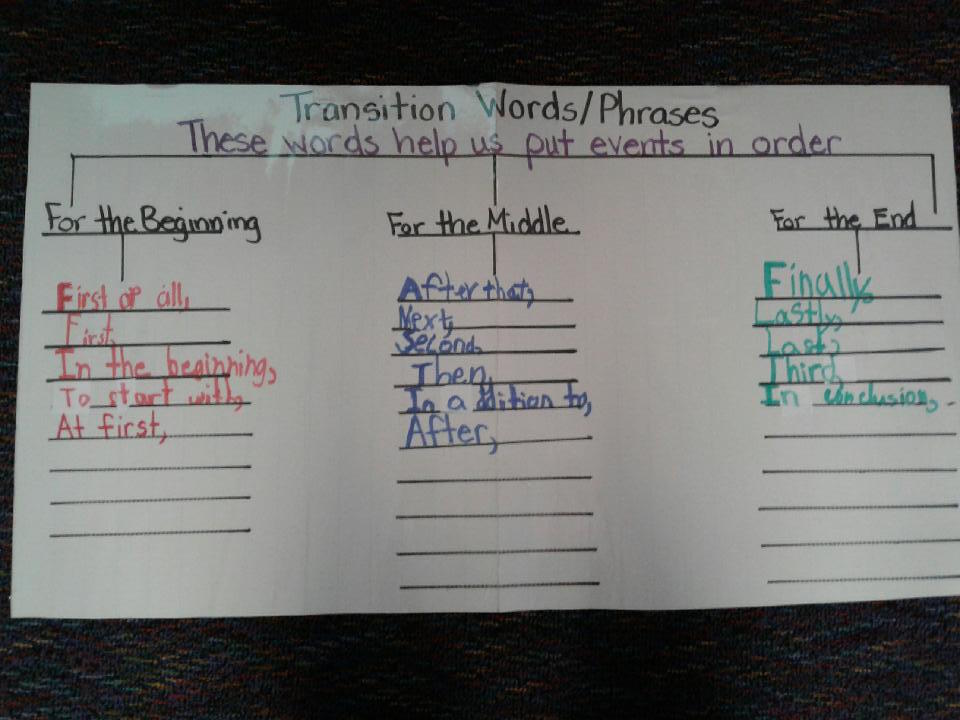 Transition Words/Phrases
These words help us put events in order
For the Beginning
First of all,
First,
In the beginning,
To start with,
At first,
For the Middle
After that,
Next,
Second,
Then,
In a ddition to,
After,
For the End
Finally,
Lastly,
Last,
Third,
In conclusion,